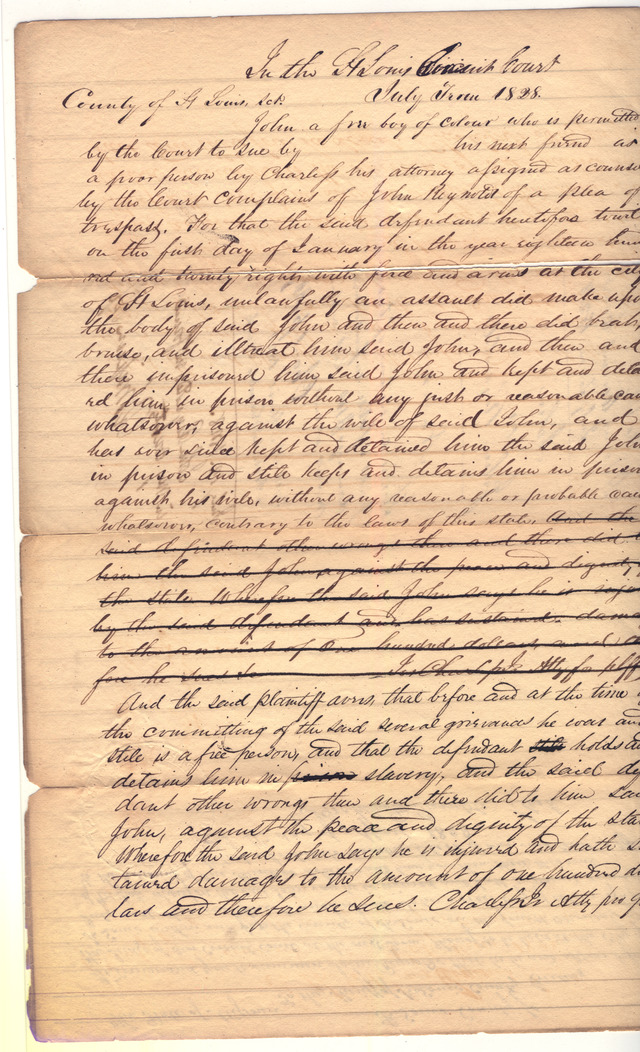 In the St Louis Circuit Court
County of St Louis, Sct. July Term 1828.
John a free boy of colour who is permitted
by the Court to sue by his next friend as
a poor person by Charless his attorney assigned as counse
by the Court complains of John Reynolds of a plea of
trespass. For that the said defendant heretofore towit
on the first day of January in the year eighteen hun
red and twenty eight, with force and arms at the city
of St Louis, unlawfully an assault did make upo
the body of said John and then and there did beat,
bruise, and illtreat him said John, and then and
there imprisoned him said John and kept and detai
ed him in prison without any just or reasonable cau
whatsoever, against the will of said John, and
has ever since kept and detained him the said John
in prison and still keeps and detains him in prison
against his will, without any reasonable or probable cau
whatsoever, contrary to the laws of this state, And the
said defendant other wrongs then and there did t
him the said John, against the peace and dignity
the state. Wherefore the said John says he is inju
by the said defendant and has sustained dama
to the amount of One hundred dollars, and
fore he sues &c Jos Charless Jr Atty for plff
And the said plaintiff avers, that before and at the time
the committing of the said several grievances he was and
still is a free person, and that the defendant still holds a
detains him in prison slavery, and the said de
dant other wrongs then and there did to him sai
John, against the peace and dignity of the sta
Wherefore the said John says he is injured and hath s
tained damages to the amount of one hundred do
lars and therefore he sues. Charless Jr Atty pro